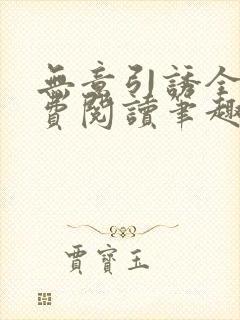 無意引誘全
費閱讀筆趣
賈寶玉